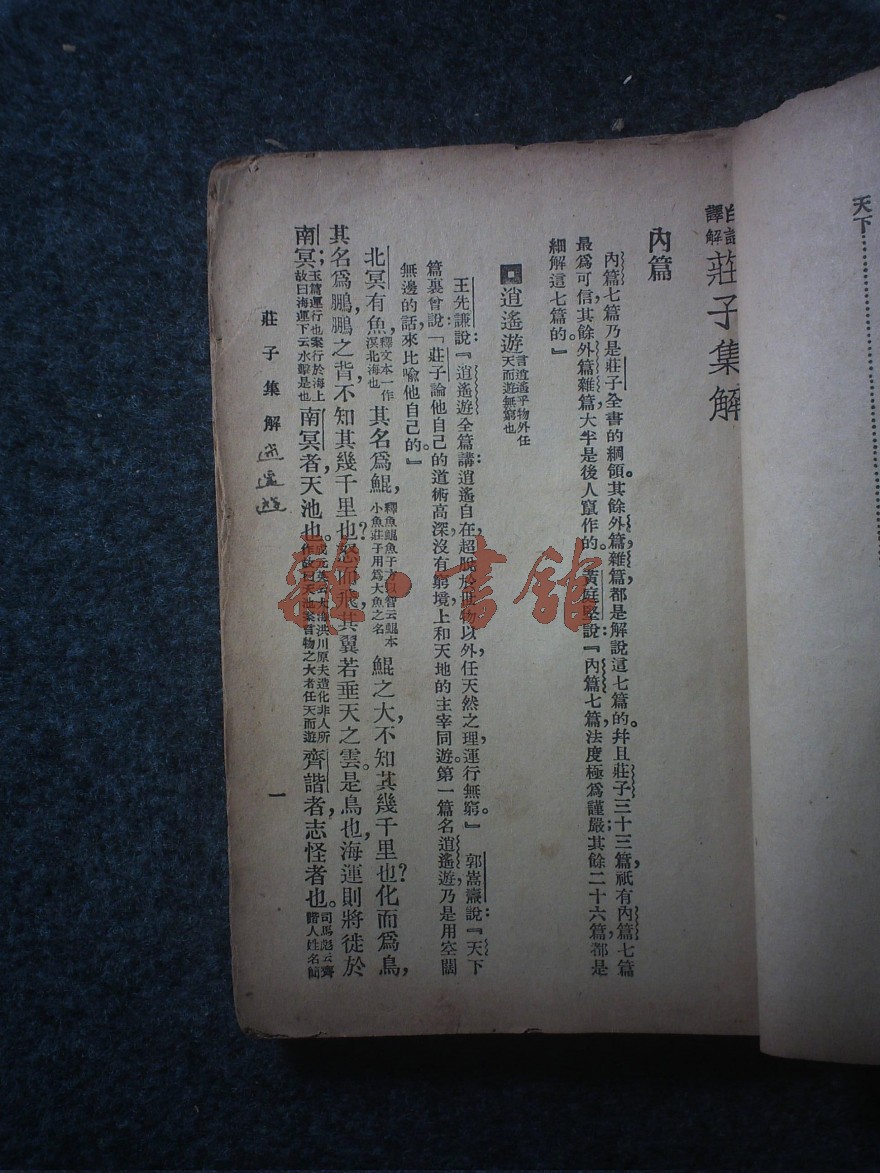 天下……………………
白話譯解 莊子集解
內篇
內篇七篇乃是莊子全書的綱領。其餘外篇,雜篇都是解說這七篇的。幷且莊子三十三篇,祇有內篇七篇
最為可信,其餘外篇雜篇大半是後人竄作的。黃庭堅說:『內篇七篇,法度極為謹嚴;其餘二十六篇,都是
細解這七篇的。』
逍遙遊 言逍遙乎物外任天而遊無窮也
王先謙說:『逍遙遊全篇講:逍遙自在,超脫於世物以外,任天然之理,運行無窮。』 郭嵩燾說:『天下
篇裏曾說:「莊子論他自己的道術高深,沒有窮境,上和天地的主宰同遊。」第一篇名逍遙遊,乃是用空闊
無邊的話來比喻他自己的。』
北冥有魚, 釋文本一作溟北海也 其名爲鯤, 釋魚鯤魚子方以智云鯤本小魚莊子用爲大魚之名 鯤之大,不知其幾千里也?化而爲鳥,
其名爲鵬,鵬之背不知其幾千里也?怒而飛,其翼若垂天之雲。是鳥也,海運則將徙於
南冥; 玉篇運行也案行於海上故曰海運下云水擊是也 南冥者,天池也。 成元英云大海洪川原夫造化非人所作故曰天池案言物之大者任天而遊 齊諧者,志怪者也。 司馬彪云齊諧人姓名簡
莊子集解 逍遙遊
一
雜·書館